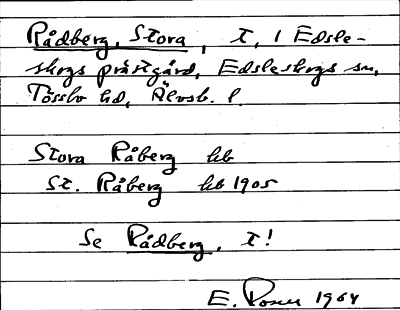 Rådberg, Stora, t, i Edsle-
skogs prästgård, Edsleskogs sn,
Tössbo hd, Älvsb. l.
Stora Råberg hb
St. Råberg hb 1905
Se Rådberg, t!
E. 1964